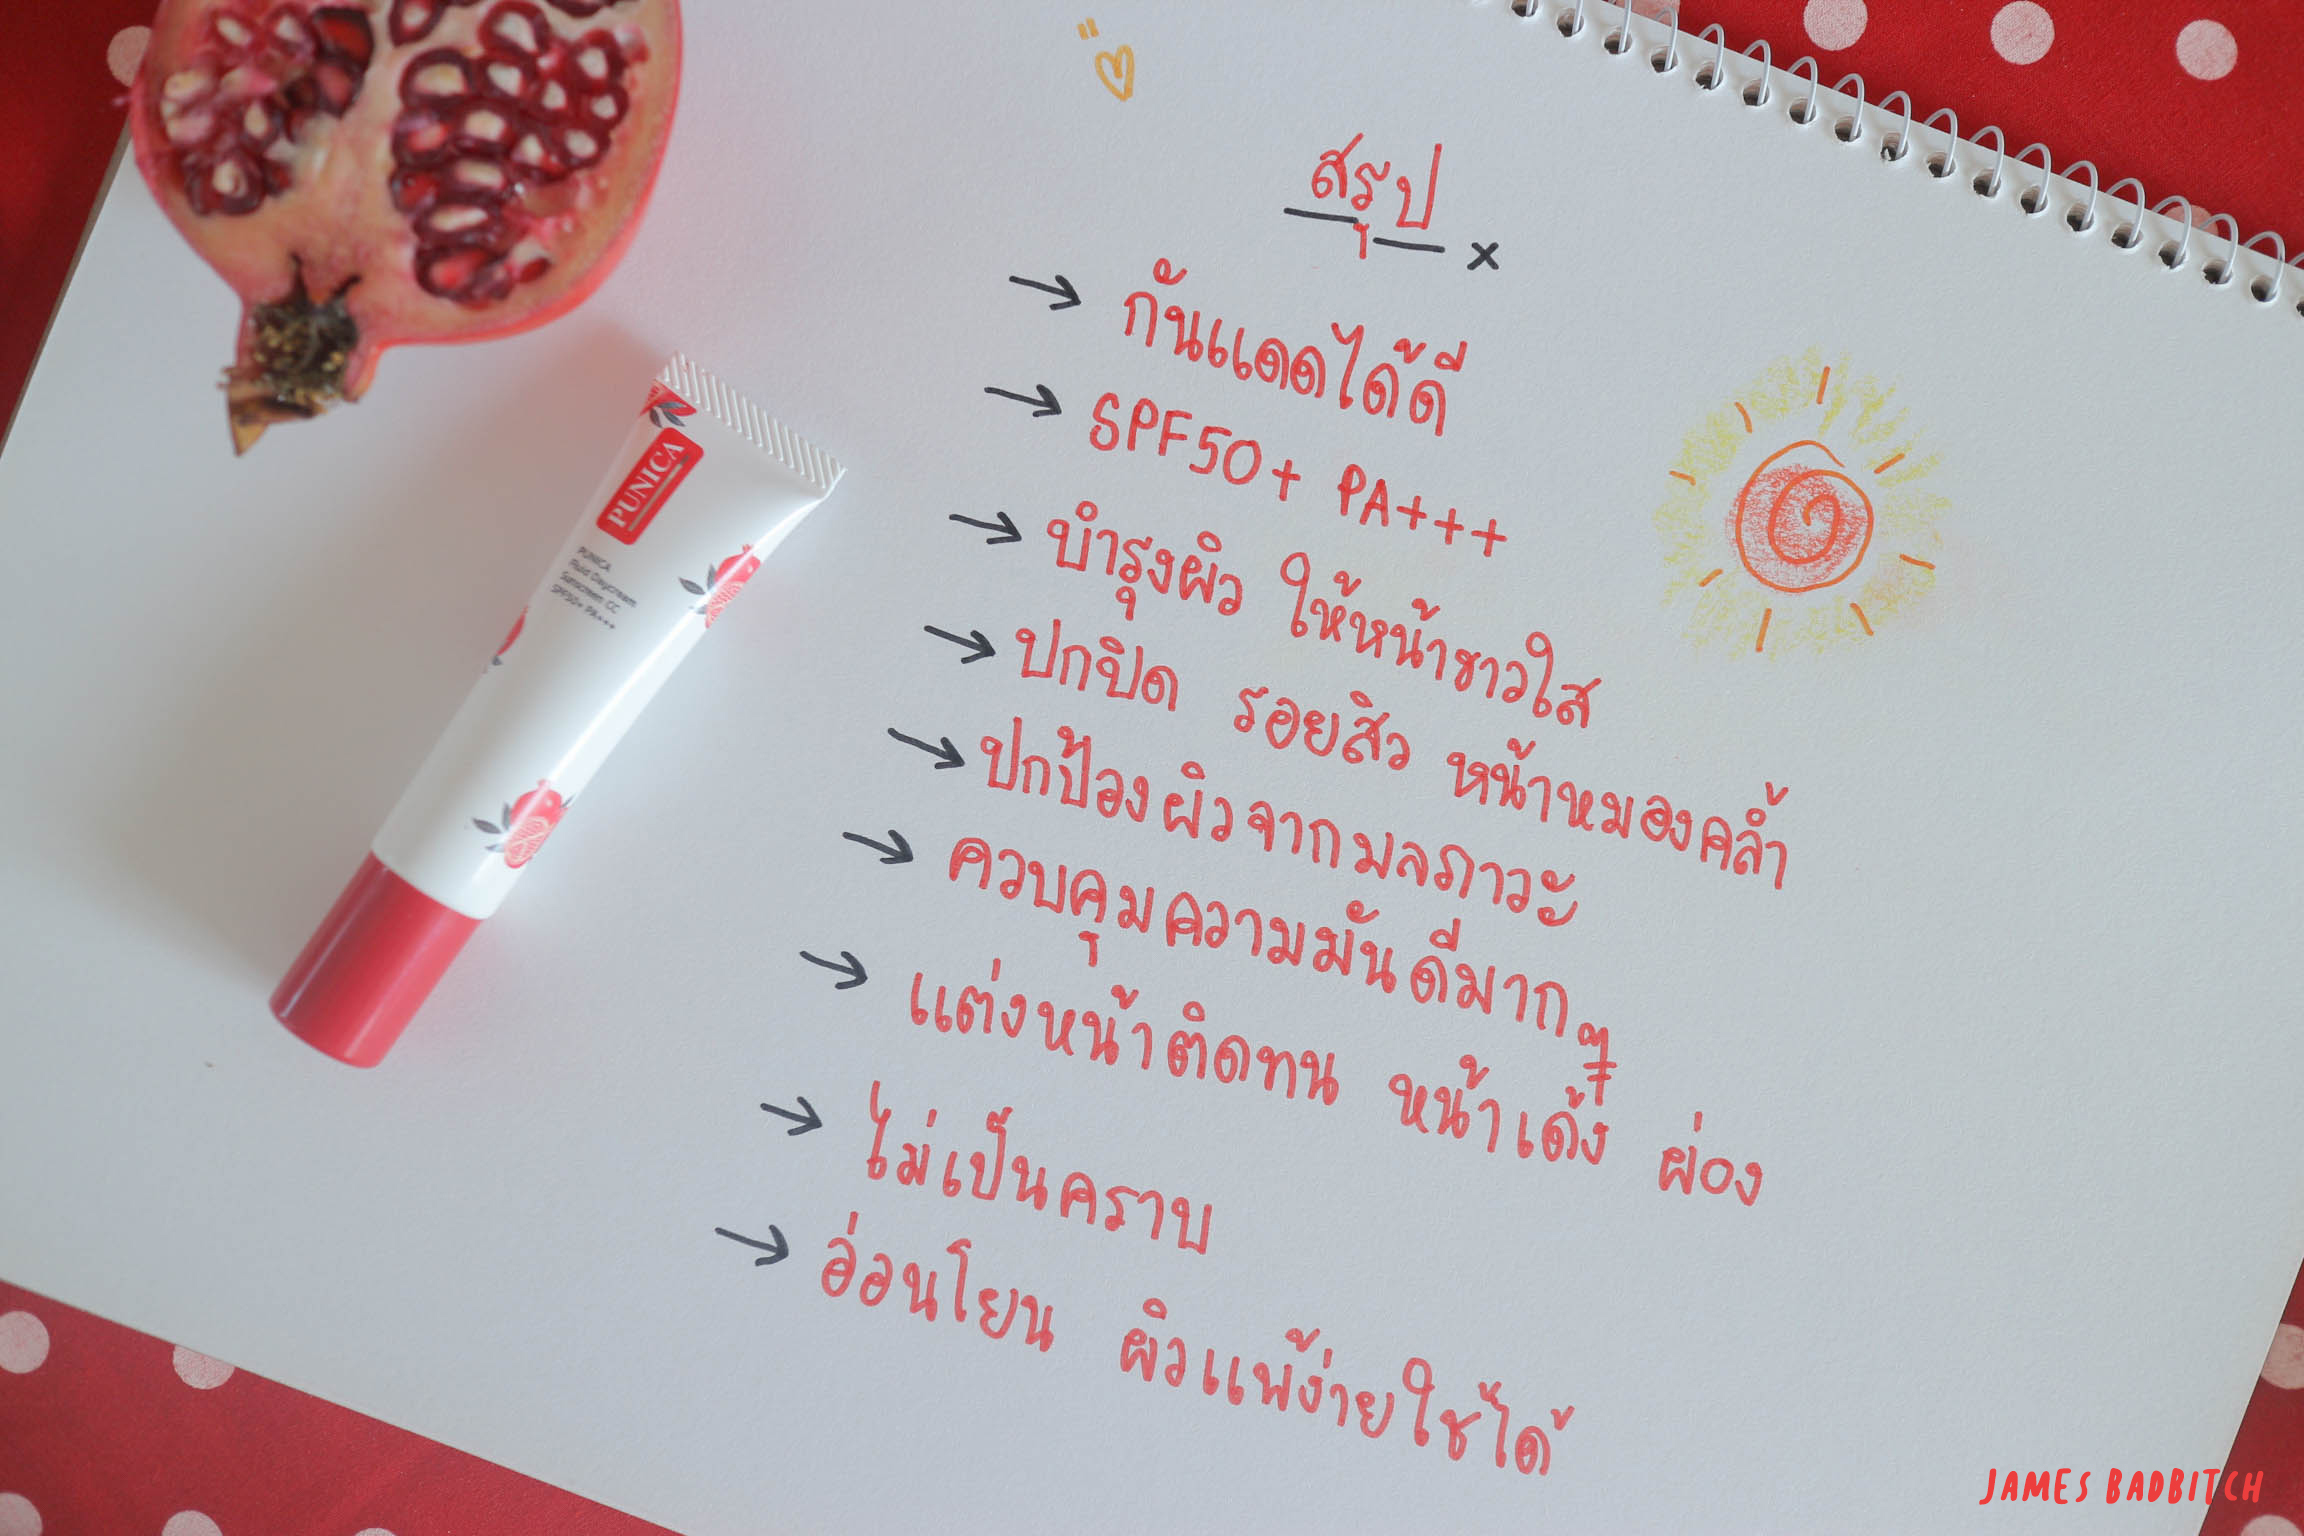 สรุป x
→ กันแดดได้ดี
→ SPF50+ PA+++
→ บำรุงผิว ให้หน้าขาวใส
→ ปกปิด รอยสิว หน้าหมองคล้ำ
→ ปกป้องผิวจากมลภาวะ
→ ควบคุมความมันดีมากๆ
→ แต่งหน้าติดทน หน้าเด้ง ผ่อง
→ ไม่เป็นคราบ
→ อ่อนโยน ผิวแพ้ง่ายใช้ได้
PUNICA
PUNICA
Fluid Daycream
Sunscreen CC
SPF50+ PA+++
JAMES BADBITCH